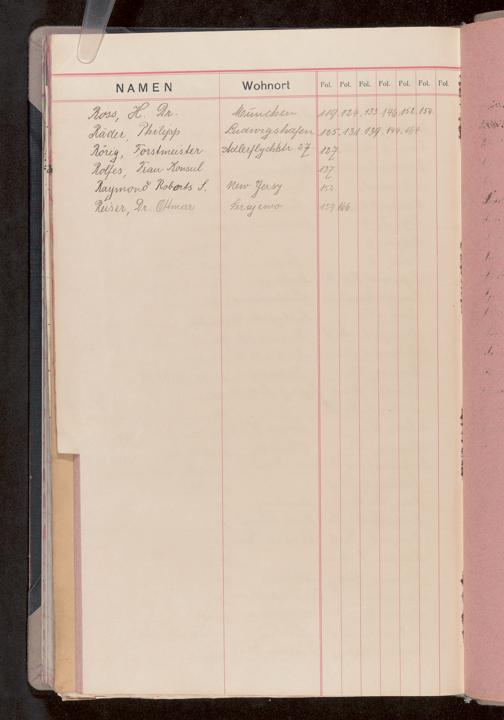 NAMEN Wohnort Fol. Fol. Fol. Fol. Fol. Fol. Fol.
Ross, H. Dr. München 119. 124. 133. 146. 152. 154.
Räder, Philipp Ludwigshafen 125. 131. 139. 144. 164.
Rörig, Forstmeister Adlerflychtstr 27 127.
Rolfes, Frau Konsul 137.
Raymond Roberts S. New Jersy 152.
Reiser, Dr. Othmar Serajewo 159. 166.